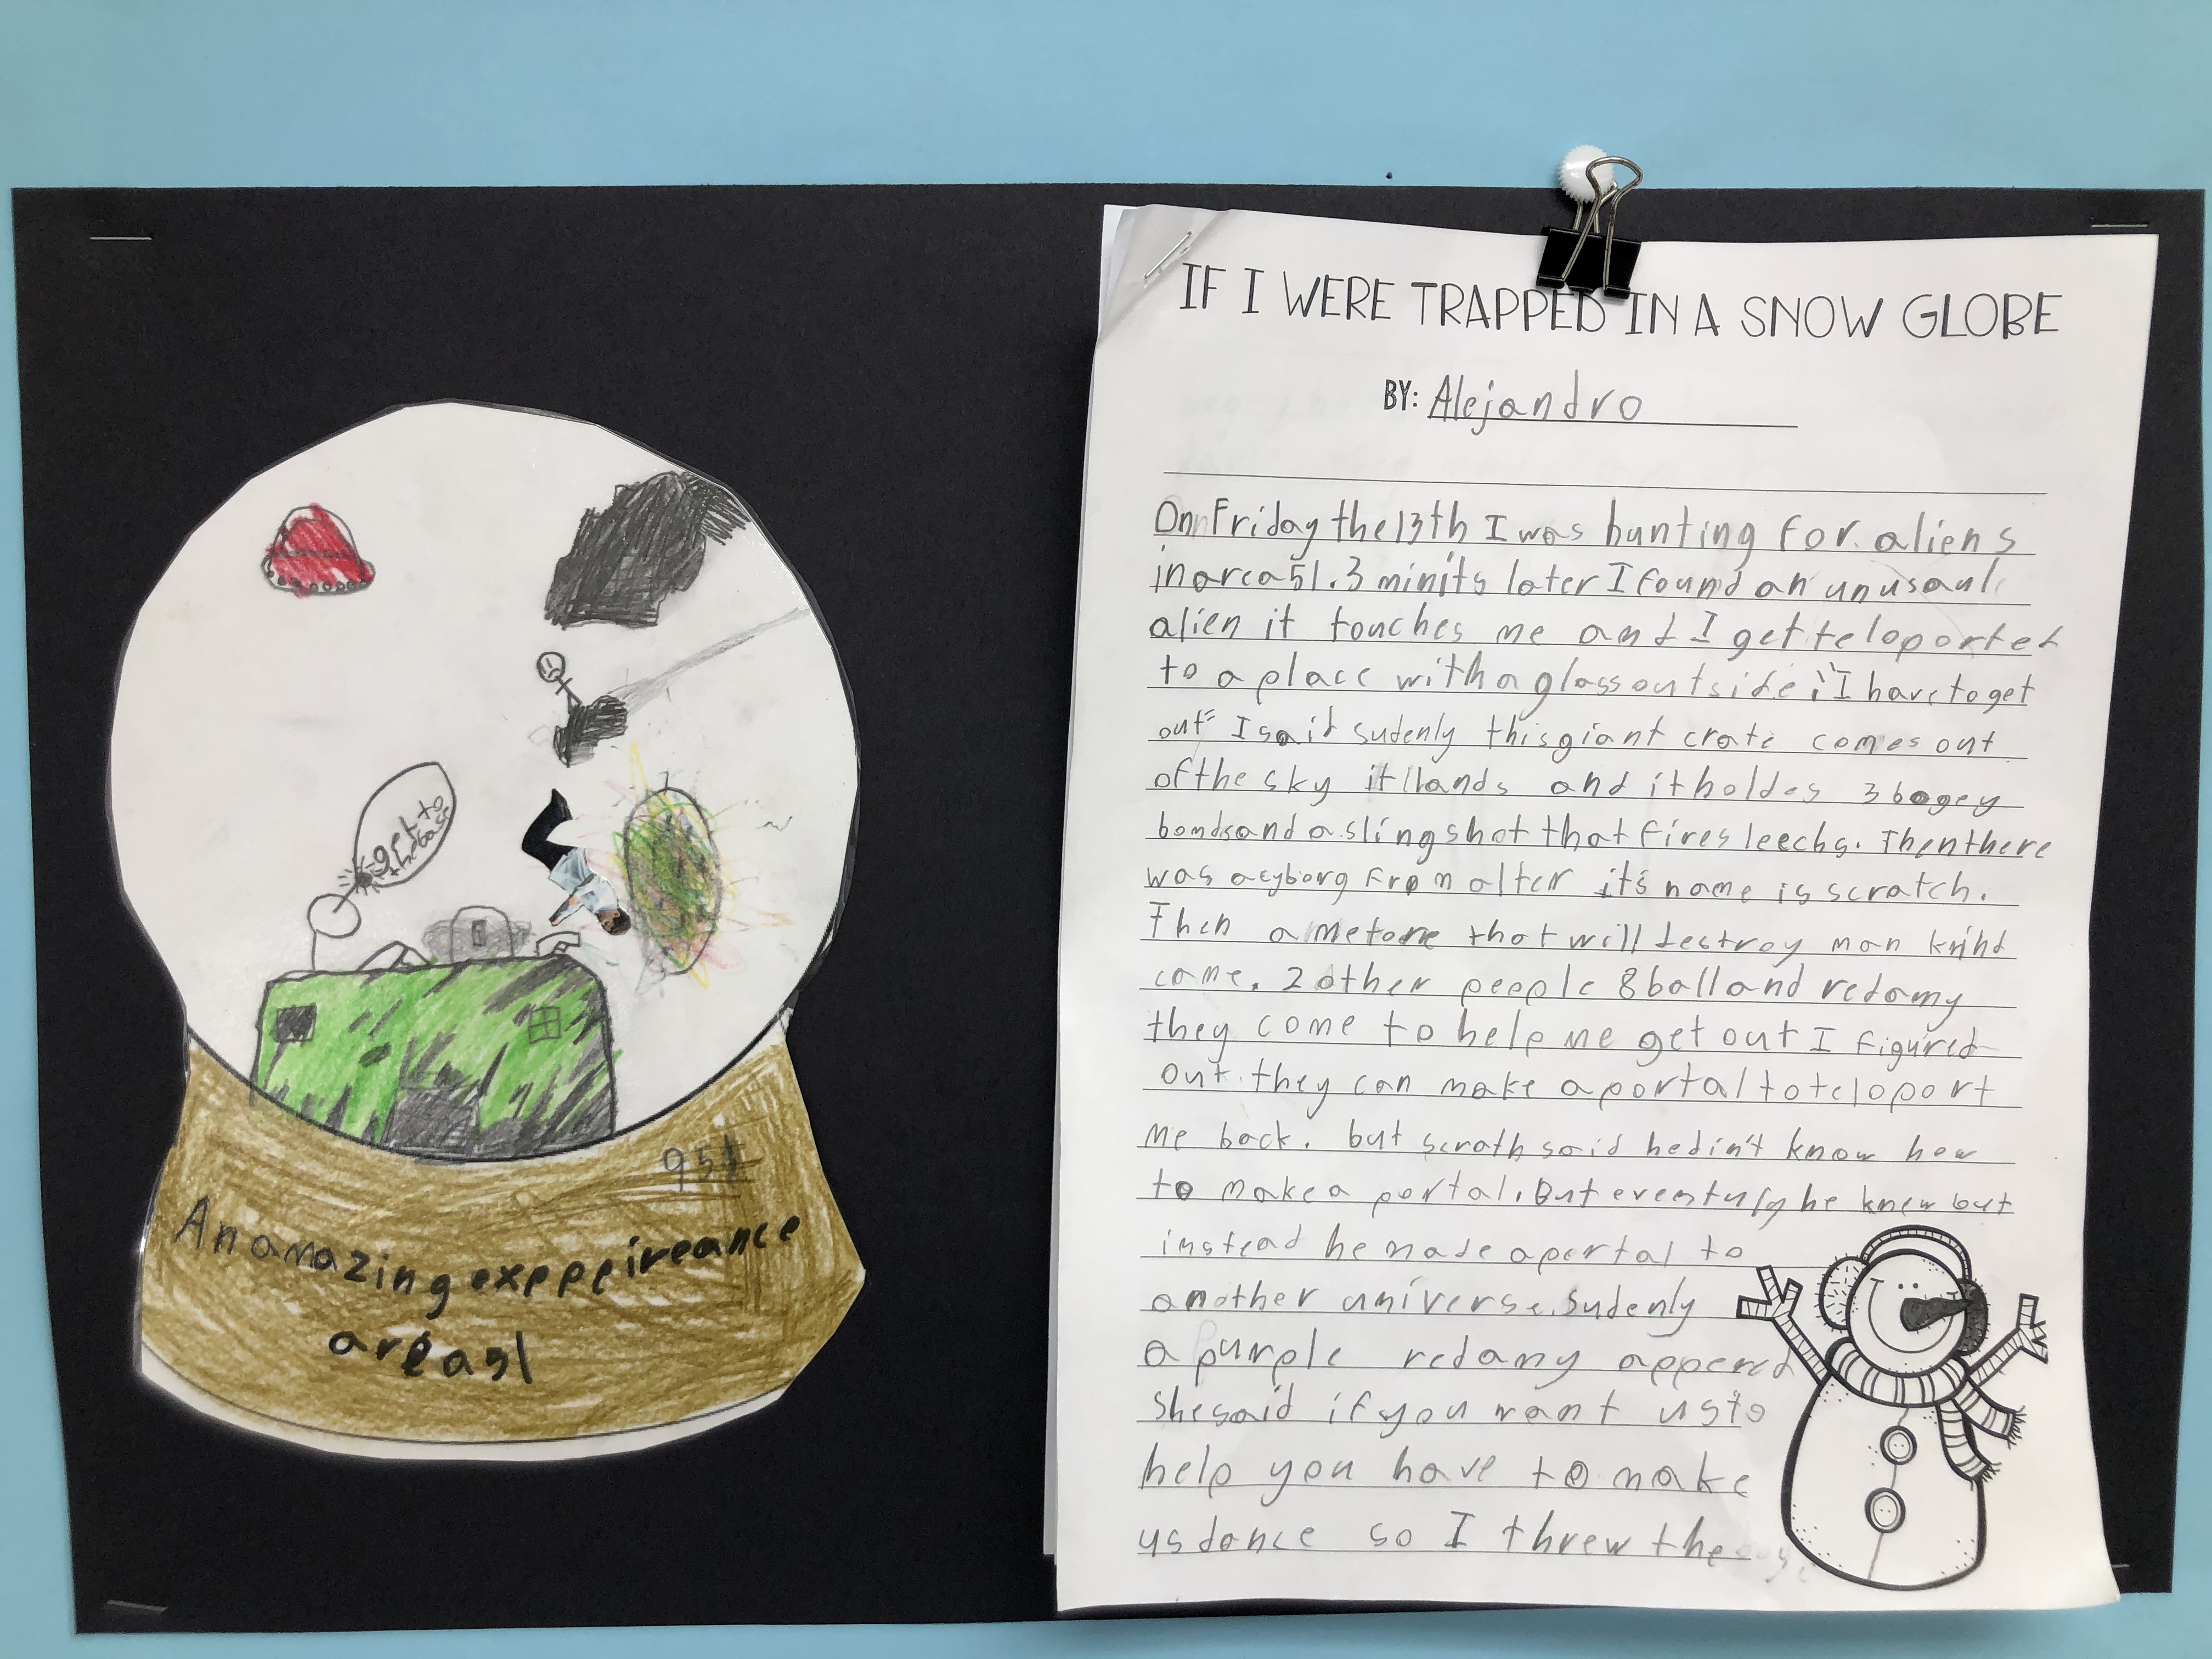 get to
the base
951
An amazing exppeireance
area51
IF I WERE TRAPPED IN A SNOW GLOBE
BY: Alejandro
On Friday the 13th I was hunting for aliens
in area 51. 3 minits later I found an unusaul
alien it touches me and I get teloported
to a place with a glass outside "I have to get
out" I said sudenly this giant crate comes out
of the sky it lands and it holdes 3 bogey
bombs and a slingshot that fires leechs. Then there
was a cyborg from alter it's name is scratch.
Then a metore that will destroy man kind
came. 2 other people 8 ball and redamy
they come to help me get out I figured
out they can make a portal to teloport
me back. but scrath said he din't know how
to make a portal. But eventuly he knew but
instead he made a portal to
another universe. Sudenly
a purple redamy apperd
she said if you want us to
help you have to make
us dance so I threw the